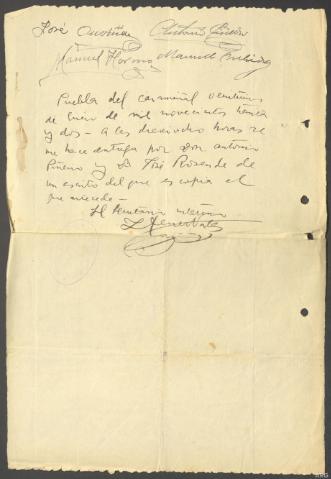 José Antonio
Manuel Manuel
Puebla del Caramiñal veintiuno
de Enero de mil novecientos treinta
y dos - a las dieciocho horas se
me hace entrega por Don Antonio
Piñeiro y D. José Rosende de
un escrito del que es copia el
que antecede -
El Secretario interino